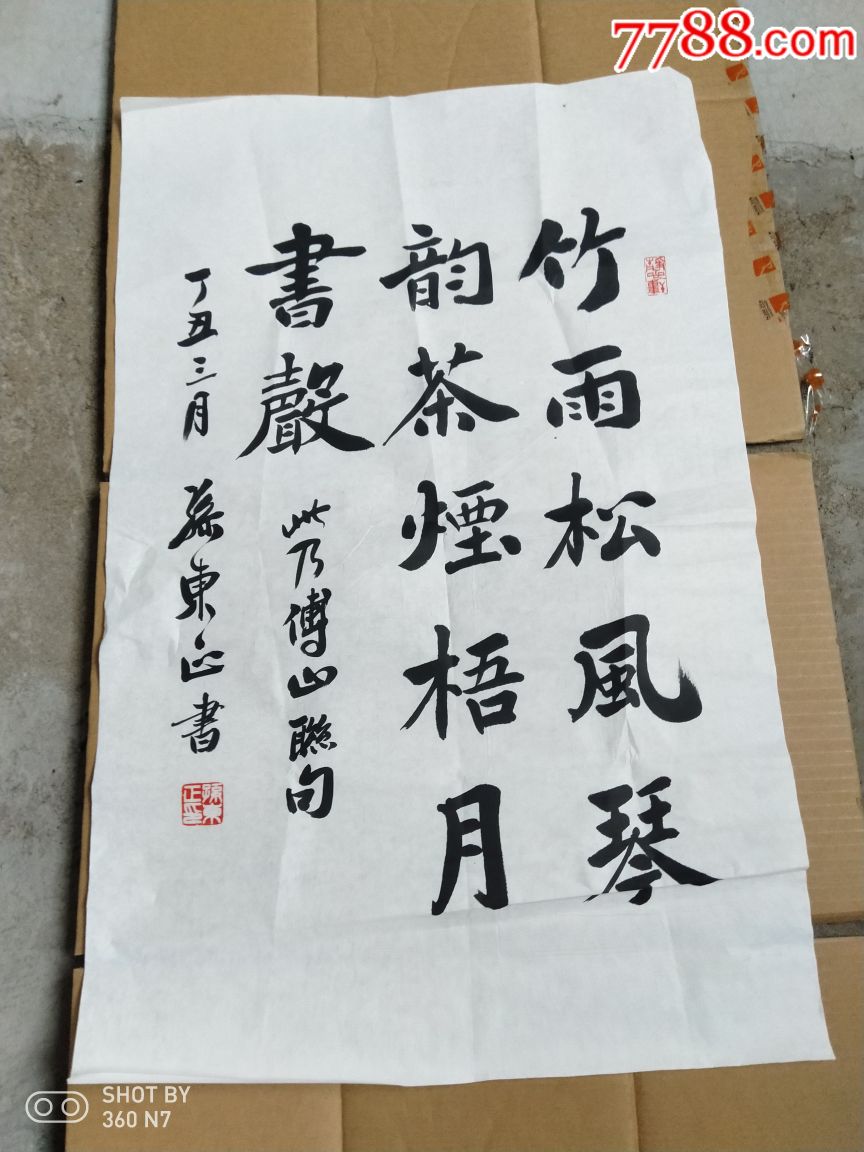 7788.com
竹雨松風琴
韵茶煙梧月
書聲
此乃傅山聯句
丁丑三月 孫東正书
孫東正印
SHOT BY
360 N7